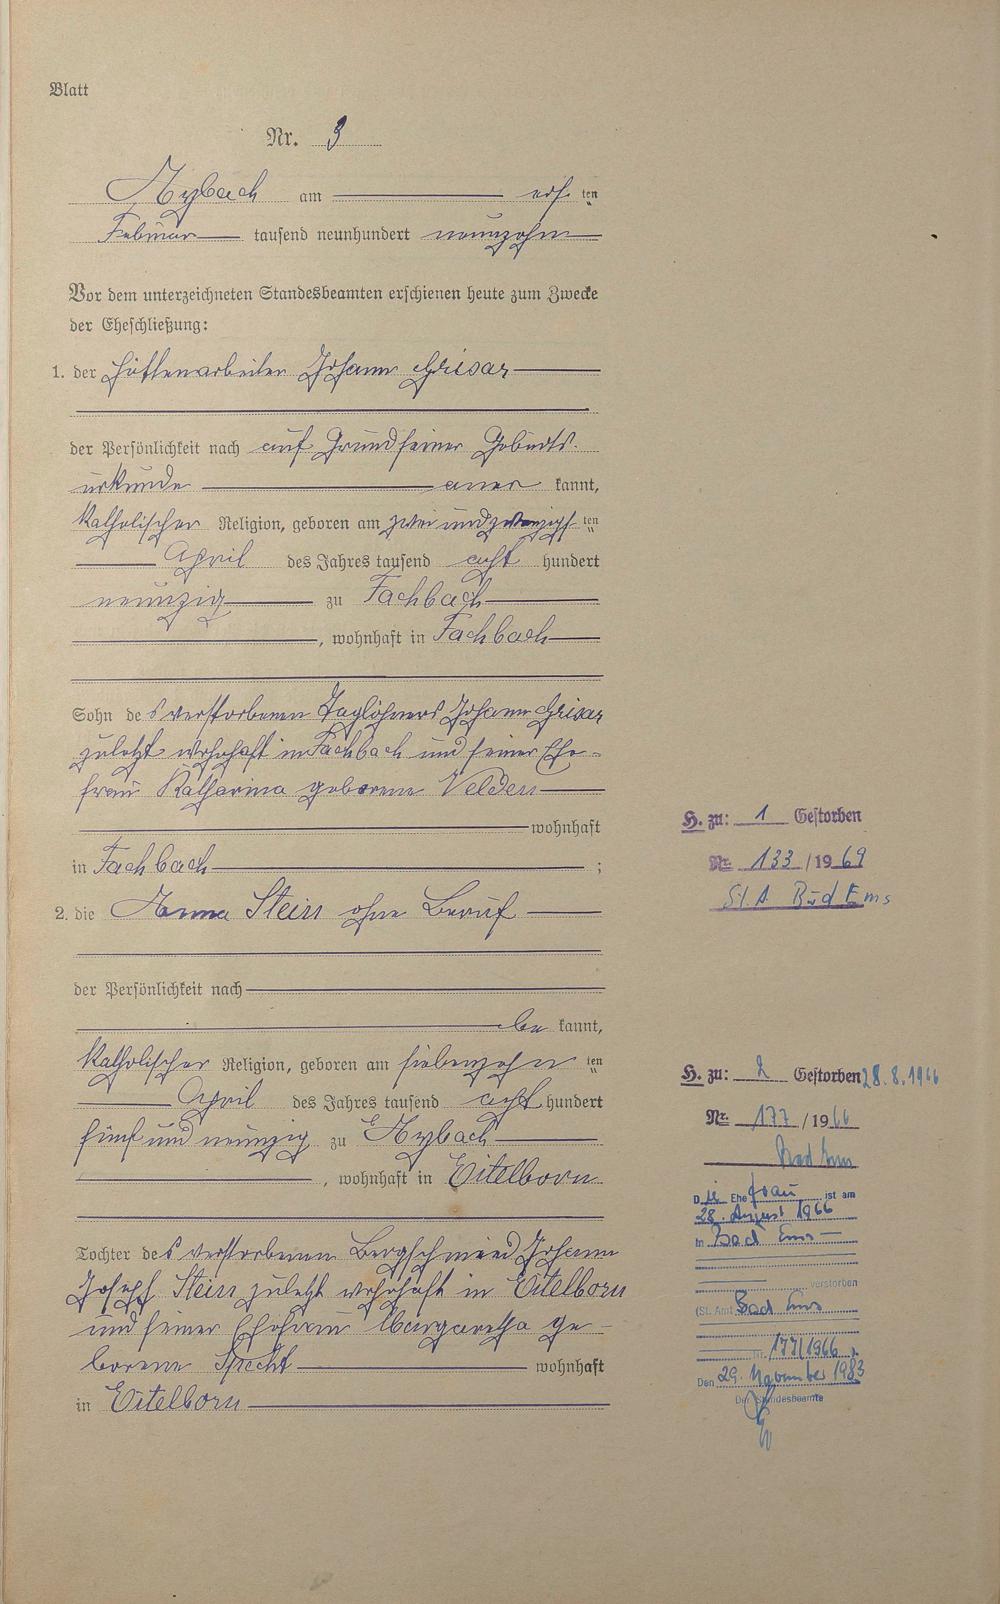 Blatt
Nr. 3
Arzbach am ersten
Februar tausend neunhundert neunzehn
Vor dem unterzeichneten Standesbeamten erschienen heute zum Zwecke
der Eheschließung:
1. der Hüttenarbeiter Johann Grisar
der Persönlichkeit nach auf Grund seiner Geburts-
urkunde aner kannt,
katholischer Religion, geboren am zwei und zwanzigsten
April des Jahres tausend acht hundert
neunzig zu Fachbach
, wohnhaft in Fachbach
Sohn des verstorbenen Taglöhners Johann Grisar
zuletzt wohnhaft in Fachbach und seiner Ehe-
frau Katharina geborene Velden
wohnhaft
in Fachbach ;
2. die Anna Stein ohne Beruf
der Persönlichkeit nach
be kannt,
katholischer Religion, geboren am siebenzehn ten
April des Jahres tausend acht hundert
fünf und neunzig zu Arzbach
, wohnhaft in Eitelborn
Tochter des verstorbenen Bergschmied Johann
Joseph Stein zuletzt wohnhaft in Eitelborn
und seiner Ehefrau Margaretha ge-
borene Specht wohnhaft
in Eitelborn
H. zu: 1 Gestorben
Nr. 133 / 1969
St.A. Bad Ems
H. zu: 2 Gestorben 28.8.1966
Nr. 177 / 1966
Bad Ems
Die Ehefrau ist am
28. August 1966
in Bad Ems
verstorben
(St. Amt Bad Ems
Nr. 177/1966 ).
Den 29. November 1983
Der Standesbeamte